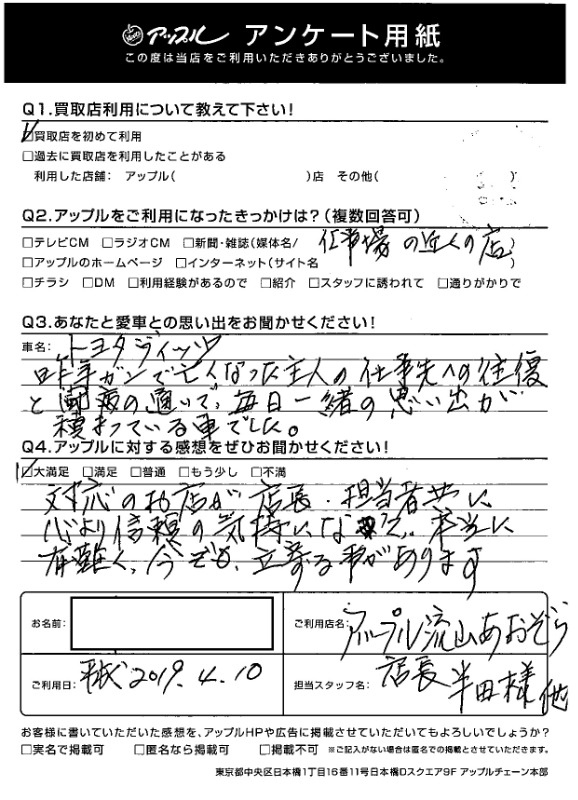 アップル アンケート用紙
この度は当店をご利用いただきありがとうございました。
Q1.買取店利用について教えて下さい!
☑買取店を初めて利用
□過去に買取店を利用したことがある
利用した店舗: アップル( )店 その他( )
Q2.アップルをご利用になったきっかけは?(複数回答可)
□テレビCM □ラジオCM □新聞・雑誌(媒体名/ 仕事場の近くの店)
□アップルのホームページ □インターネット(サイト名 )
□チラシ □DM □利用経験があるので □紹介 □スタッフに誘われて □通りがかりで
Q3.あなたと愛車との思い出をお聞かせください!
車名: トヨタヴィッツ
昨年ガンで亡くなった主人の仕事先への往復
と闘病の通いで、毎日一緒の思い出が
積まっている車でした。
Q4.アップルに対する感想をぜひお聞かせください!
☑大満足 □満足 □普通 □もう少し □不満
対応のお店が店長・担当者共に
心より信頼の気持になって、本当に
有難く、今でも、立寄る事があります
お名前:
ご利用店名: アップル流山あおぞら
ご利用日: 2019.4.10
担当スタッフ名: 店長 半田様 他
お客様に書いていただいた感想を、アップルHPや広告に掲載させていただいてもよろしいでしょうか?
□実名で掲載可 □匿名なら掲載可 □掲載不可 ※ご記入がない場合は匿名での掲載とさせていただきます。
東京都中央区日本橋1丁目16番11号日本橋Dスクエア9F アップルチェーン本部